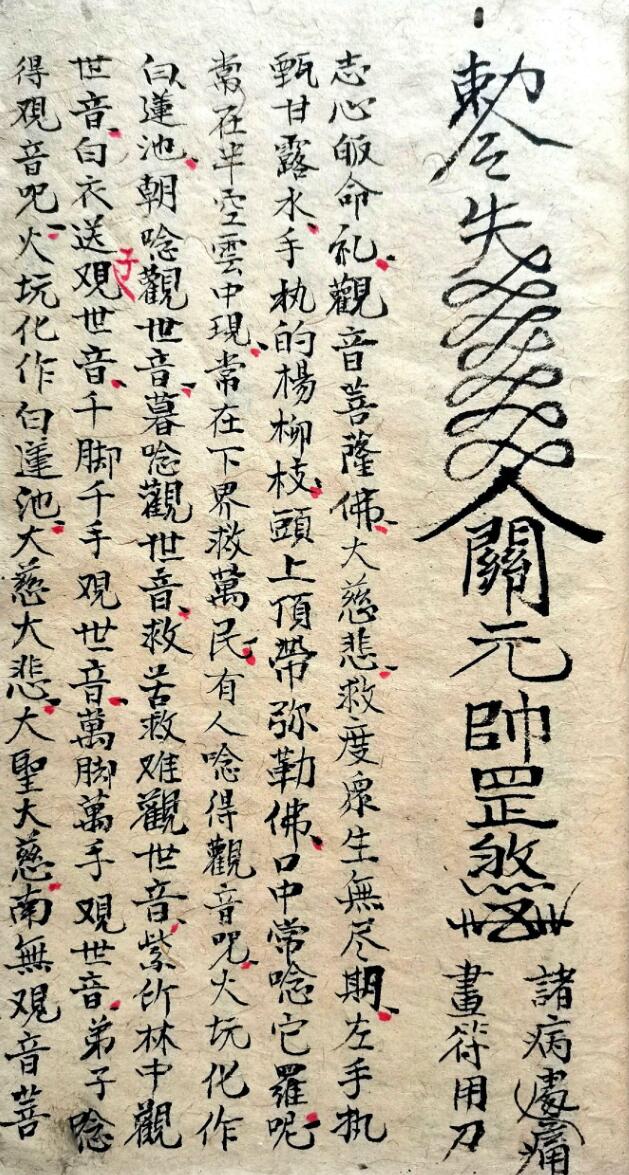 敕令失
人關元帥罡煞
諸病處痛
畫符用刀
志心皈命礼觀音菩薩佛大慈悲救度眾生無尽期左手执
甘露水手执的楊柳枝頭上頂帶弥勒佛口中常唸它羅呢
常在半空雲中現常在下界救萬民有人唸得觀音咒火坑化作
白蓮池朝唸觀世音暮唸觀世音救苦救难觀世音紫竹林中觀
世音白衣送子覌世音千脚千手覌世音萬脚萬手覌世音弟子唸
得覌音咒火坑化作白蓮池大慈大悲大聖大慈南無覌音菩